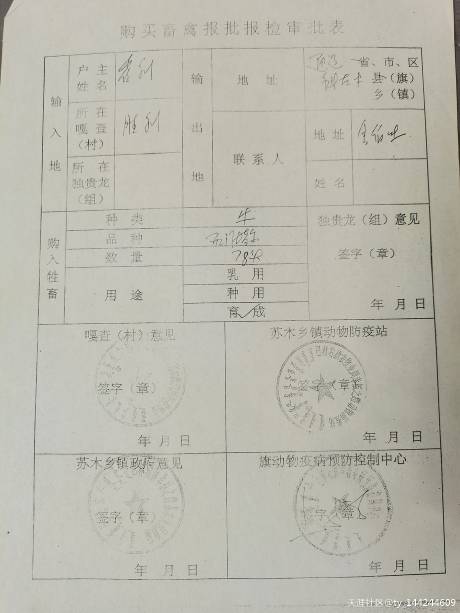 购买畜禽报批报检审批表
输入地
户主姓名
所在嘎查（村）
胜利
所在独贵龙（组）
输出地
地址
通辽
省、市、区
县（旗）
乡（镇）
联系人
地址
姓名
购入牲畜
种类
牛
品种
数量
78头
用途
乳用
种用
育成
独贵龙（组）意见
签字（章）
年 月 日
嘎查（村）意见
签字（章）
年 月 日
苏木乡镇动物防疫站
签字（章）
年 月 日
苏木乡镇政府意见
签字（章）
年 月 日
旗动物疫病预防控制中心
签字（章）
年 月 日
天涯社区@ty_144244609